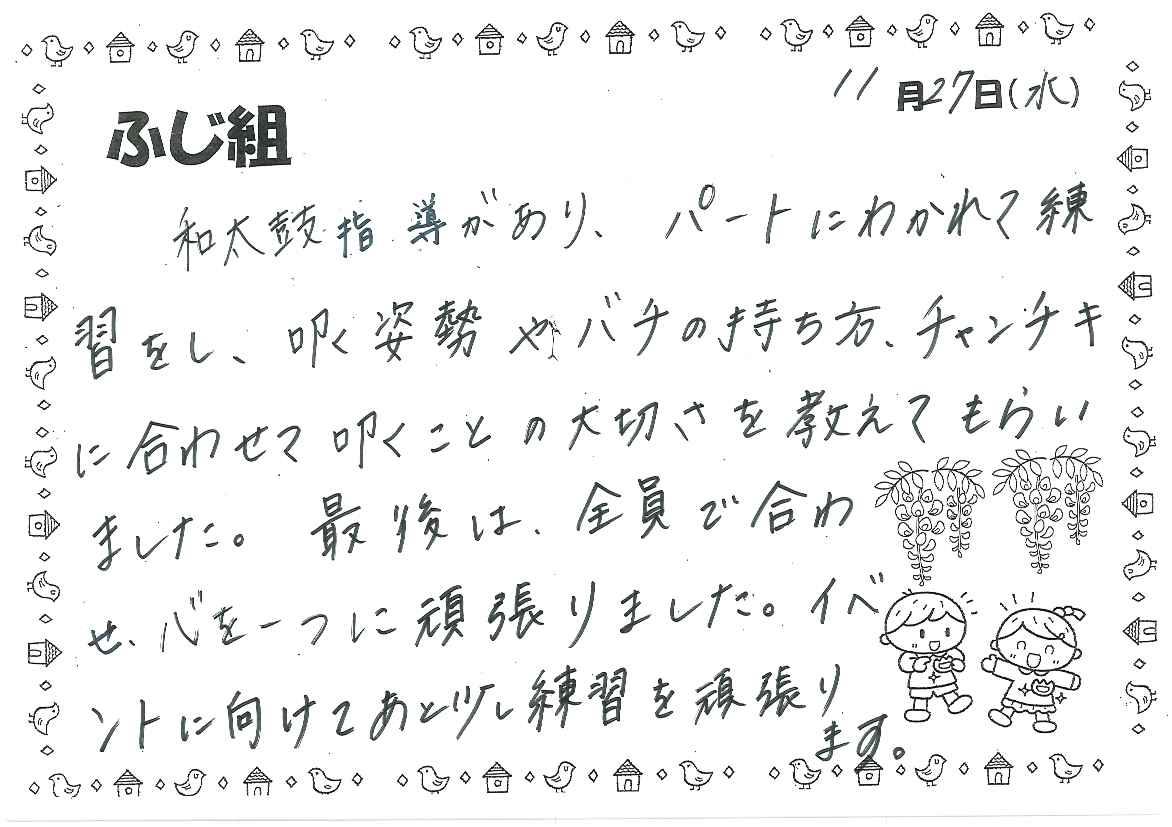 11月27日(水)
ふじ組
和太鼓指導があり、パートにわかれて練
習をし、叩く姿勢やバチの持ち方、チャンチキ
に合わせて叩くことの大切さを教えてもらい
ました。最後は、全員で合わ
せ、心を一つに頑張りました。イベ
ントに向けてあと少し練習を頑張り
ます。